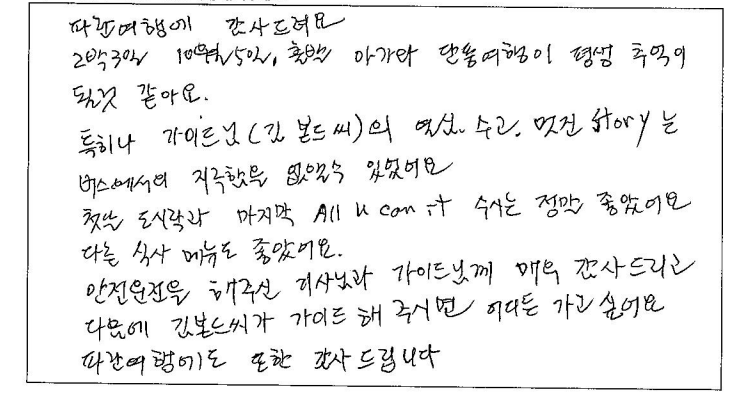 파란여행에 감사드려요
2박3일 10월5일, 흑백 아가와 단풍여행이 평생 추억이
될것 같아요.
특히나 가이드님(김 본드 씨)의 열심. 수고. 멋진 story 는
버스에서의 지루함을 없앨수 있었어요
첫날 도시락과 마지막 All U can it 수시는 정말 좋았어요
다른 식사 메뉴도 좋았어요.
안전운전을 해주신 기사님과 가이드님께 매우 감사드리고
다음에 김본드씨가 가이드 해 주시면 어디든 가고 싶어요
파란여행에도 또한 감사 드립니다